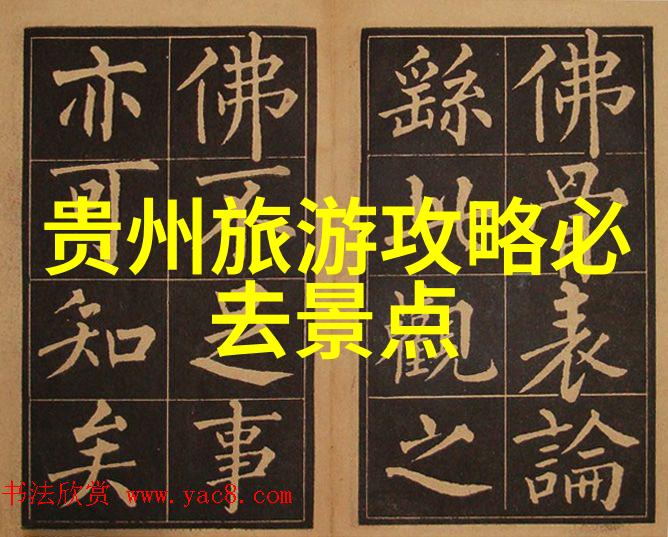 佛骨表論
繇此觀之
佛不足事
亦可知矣
贵州旅游攻略必
去景点
书法欣赏 www.yac8.com